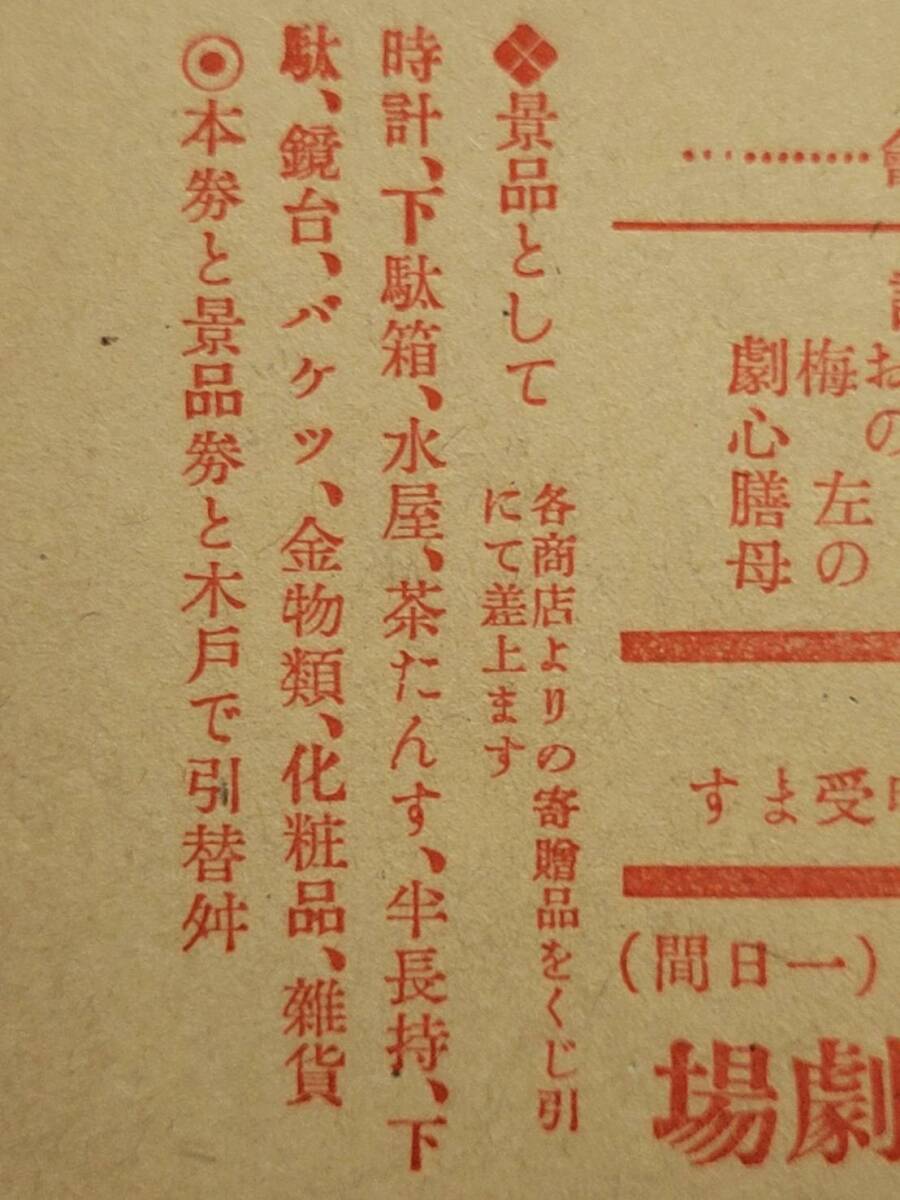 劇場
(一日間)
申受ます
おの
梅 左の
劇心膳母
❖景品として
各商店よりの寄贈品をくじ引
にて差上ます
時計、下駄箱、水屋、茶たんす、半長持、下
駄、鏡台、バケツ、金物類、化粧品、雑貨
◉本券と景品券と木戸で引替舛